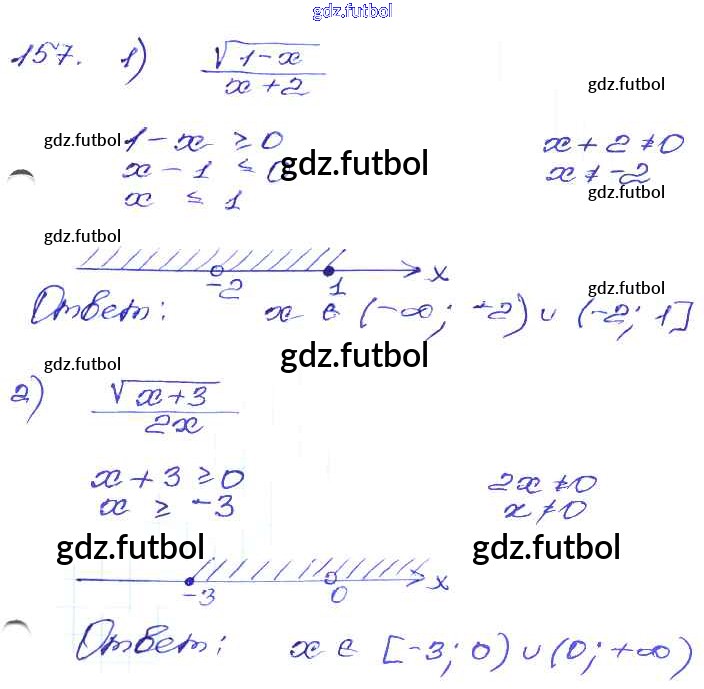 gdz.futbol
157. 1) √(1-x) / (x+2)
gdz.futbol
gdz.futbol 1-x ≥ 0 x+2≠0
x-1 ≤ 0 gdz.futbol x≠-2
x ≤ 1 gdz.futbol
gdz.futbol
-2 1 x
gdz.futbol
Ответ: x ∈ (-∞; -2) ∪ (-2; 1]
gdz.futbol
gdz.futbol
2) √(x+3) / 2x
x+3 ≥ 0 2x≠0
x ≥ -3 x≠0
gdz.futbol gdz.futbol
-3 0 x
Ответ: x ∈ [-3; 0) ∪ (0; +∞)